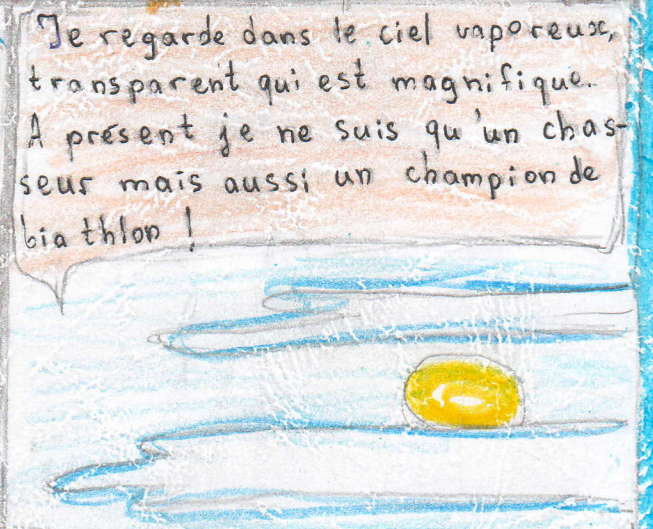 Je regarde dans le ciel vaporeux,
transparent qui est magnifique.
A présent je ne suis qu'un chas-
seur mais aussi un champion de
biathlon !